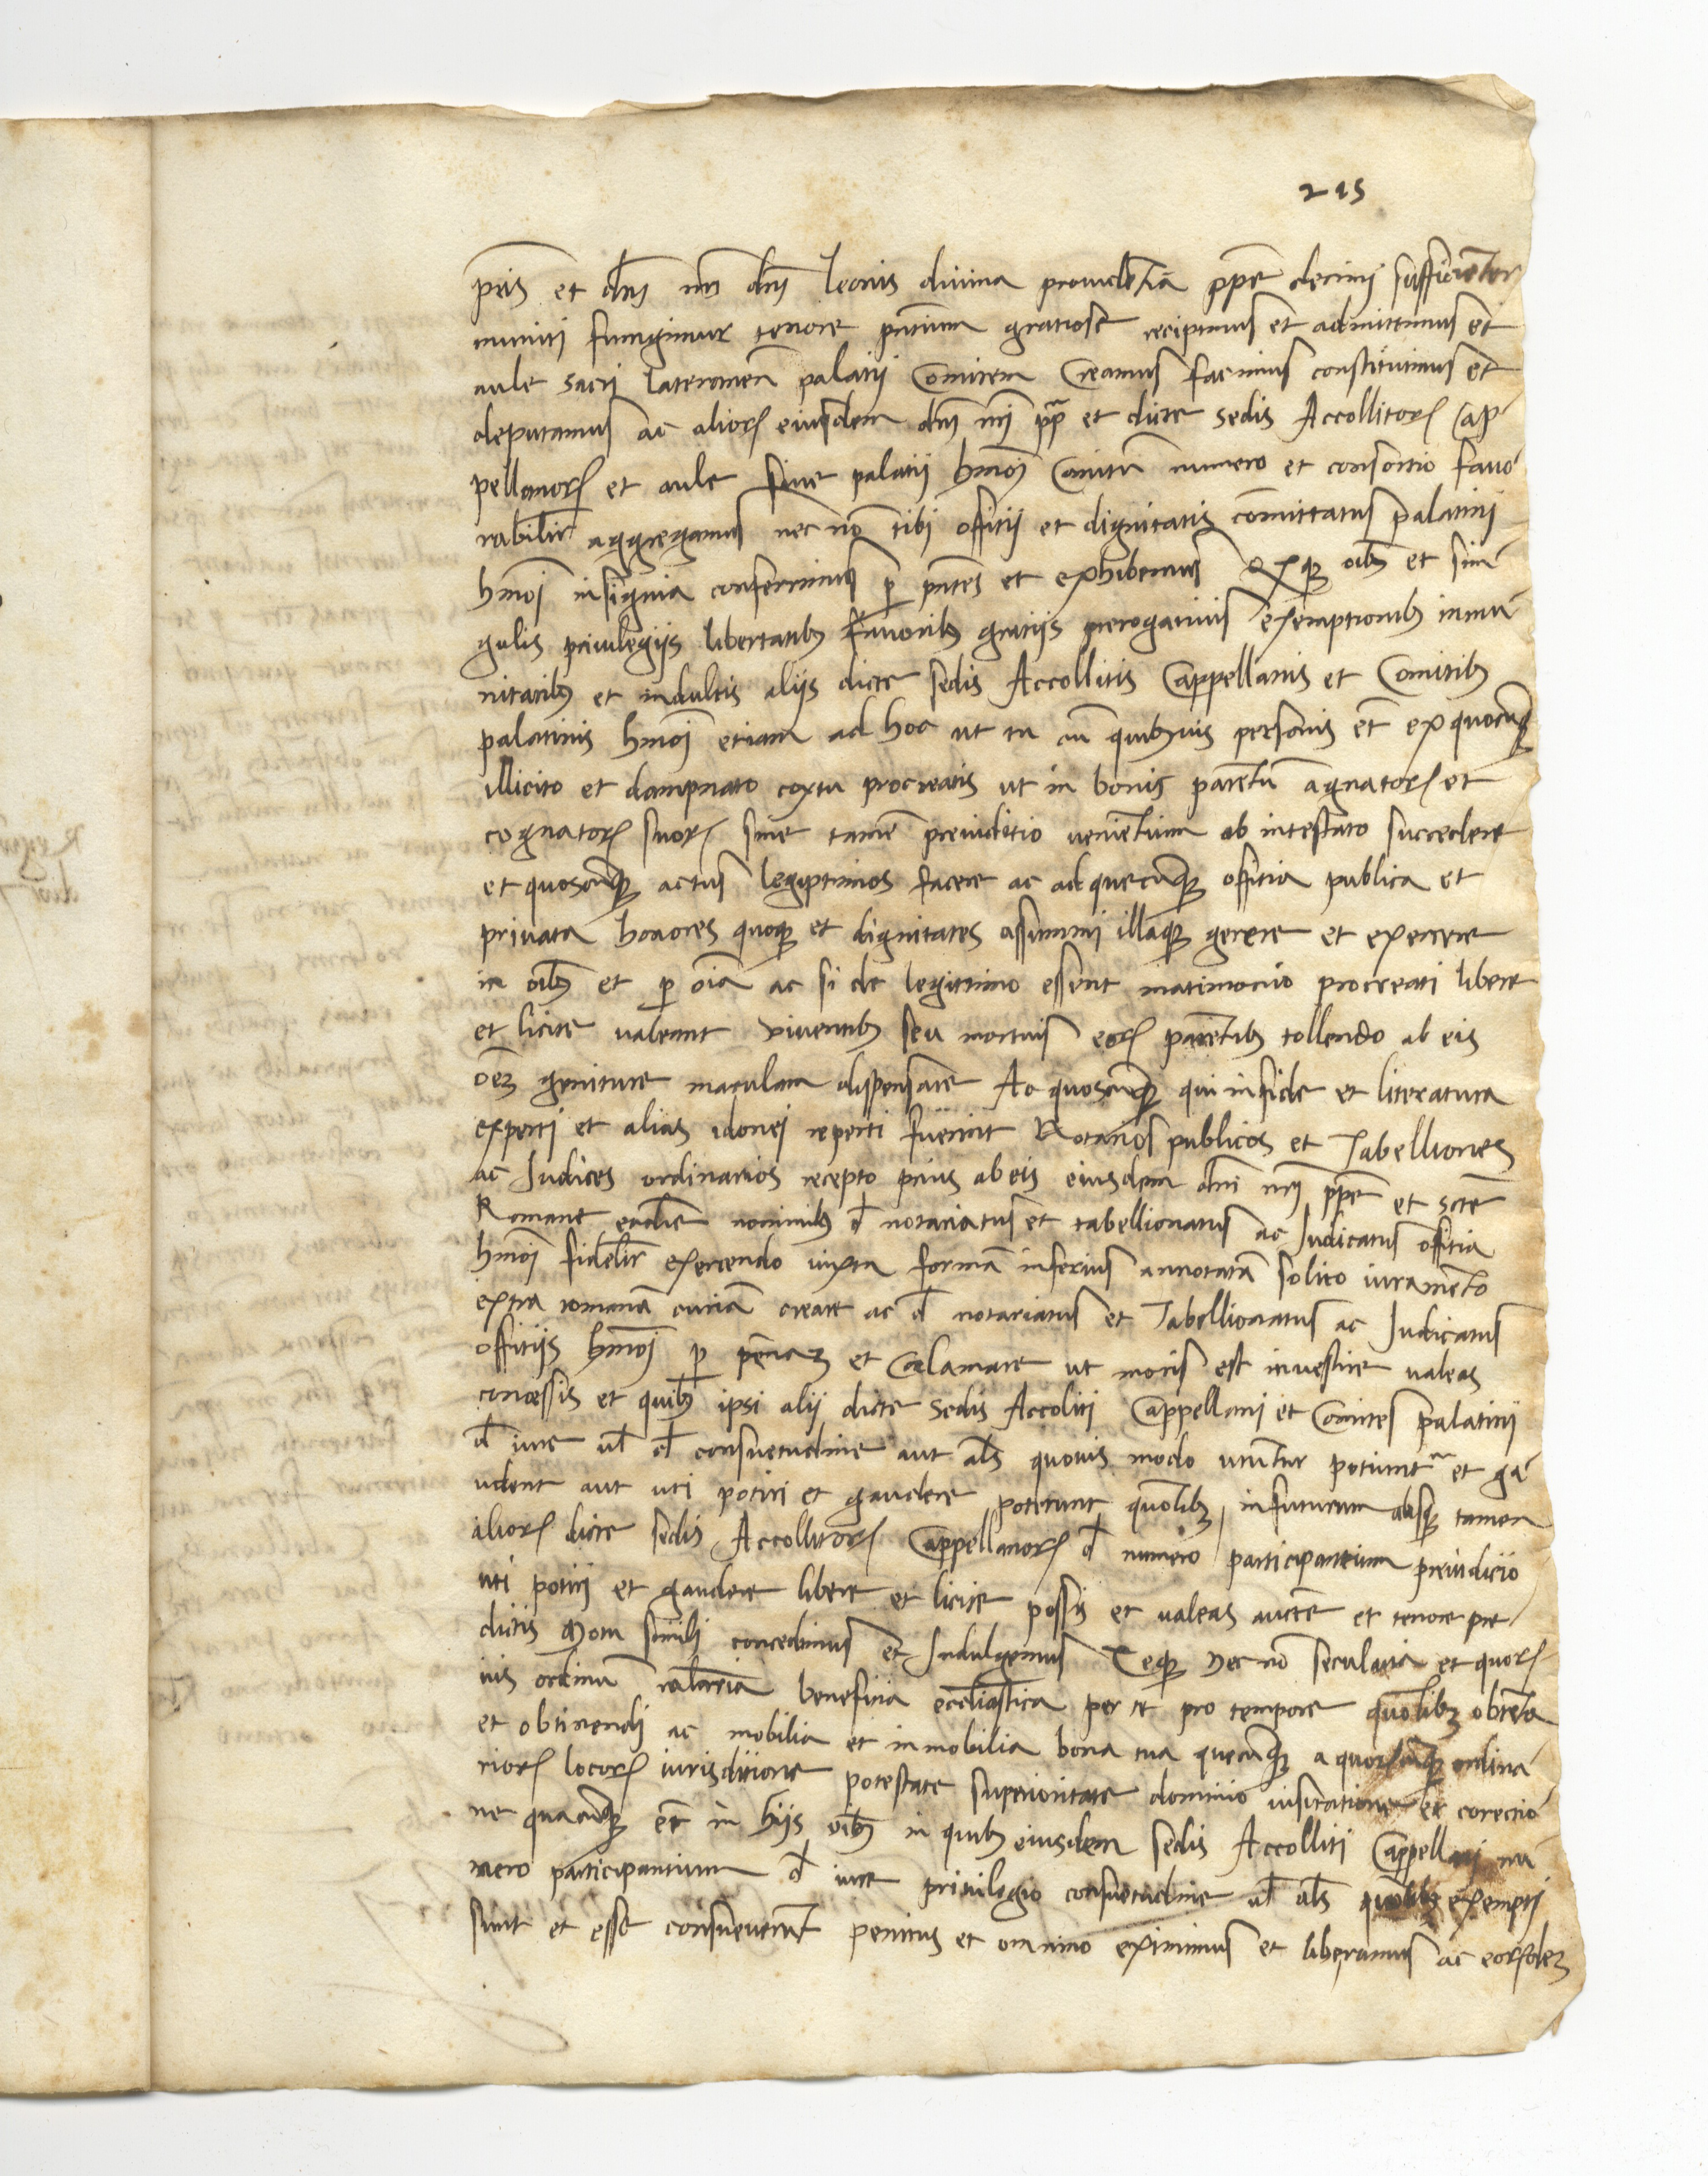 215
pris et dni nri dni leonis divina providentia ppe decimi sufficienter
muniti fungimur tenore pntium gratiose recipimus et admittimus et
aule sacri lateranen palatij Comitem Creamus facimus constituimus et
deputamus ac alior eiusdem dni nri pp et dicte sedis Accollitor Cap
pellanor et aule sive palatij hmoi Comitu numero et consortio favo
rabilir aggregamus nec no tibi offitij et dignitatis comittatus palatini
hmoi insignia conferimus p pntes et exhibemus q oibus et sin
gulis privilegijs libertatibus favoribus gratijs prerogativis exemptionibus inmu
nitatibus et indultis alijs dicte sedis Accollitis Cappellanis et Comitibus
palatinis hmoi etiam ad hoc ut tu cu quibusvis personis et ex quocunque
illicito et dampnato coytu procreatis ut in bonis parentu agnator et
cognator suor sine tame preiuditio venientium ab intestato succedere
et quoscunque actus legiptimos facere ac ad quecunque offitia publica et
privata honores quoque et dignitates assummi illaque gerere et exercere
in oibus et p oia ac si de legittimo essent matrimonio procreati libere
et licite valeant viventibus seu mortuis eor parentibus tollendo ab eis
oem geniture maculam dispensare Ac quoscunque qui in fide et literatura
experti et alias idonei reperti fuerint Notarios publicos et Tabelliones
ac Judices ordinarios recepto prius ab eis eiusdem dni nri ppe et scte
Romane ecclie nominibus d notariatus et tabellionatus ac Judicatus offitia
hmoi fidelir exercendo iuxta forma inferius annotata solito iuramento
extra romana curia creare ac d notariatus et Tabellionatus ac Judicatus
offitijs hmoi p penam et Calamare ut moris est investire valeas
concessis et quibus ipsi alij dicte sedis Accoliti Cappellani et Comites palatini
d iure ul d consuetudine aut als quovis modo utuntur potiunt et ga
udent aut uti potiri et gaudere poterunt quolibet in futurum absque tamen
alior dicte sedis Accollitor Cappellanor d numero participantium preiudicio
uti potiri et gaudere libere et licite possis et valeas aucte et tenore pre
dictis Motu simili concedimus et Indulgemus Teque nec no secularia et quor
vis ordinu regularia beneficia ecclesiastica per te pro tempore quolibet obtenta
et obtinendi ac mobilia et inmobilia bona tua quecunque a quorcunque ordina
rior locor iurisditione potestate superioritate dominio visitatione et corectio
ne quacunque et in hijs oibus in quibus eiusdem sedis Accolliti Cappellani nu
mero participantium d iure privilegio consuetudine ul als quolibet exempti
sunt et esse consueverunt penitus et omnino eximimus et liberamus ac eorsdem